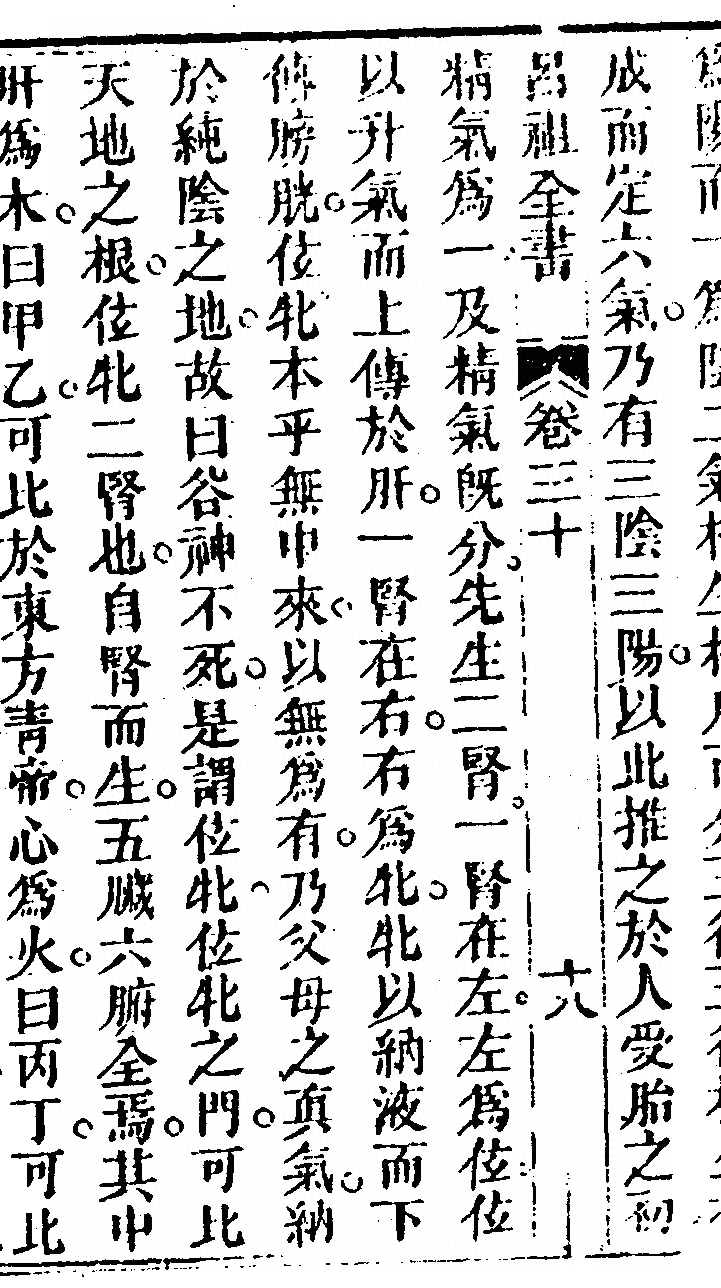 爲陽而一爲陰二氣相生相
成而定六氣○乃有三陰三陽○以此推之於人受胎之初
呂祖全書 卷三十 十八
精氣爲一及精氣旣分○先生二腎○一腎在左○左爲伭伭
以升氣而上傳於肝○一腎在右○右爲牝○牝以納液而下
傳膀胱○伭牝本乎無中來○以無爲有○乃父母之眞氣○納
於純陰之地○故曰谷神不死○是謂伭牝○伭牝之門○可比
天地之根○伭牝二腎也○自腎而生○五臟六腑全焉○其中
肝爲木○曰甲乙○可比於東方靑帝○心爲火○曰丙丁○可比